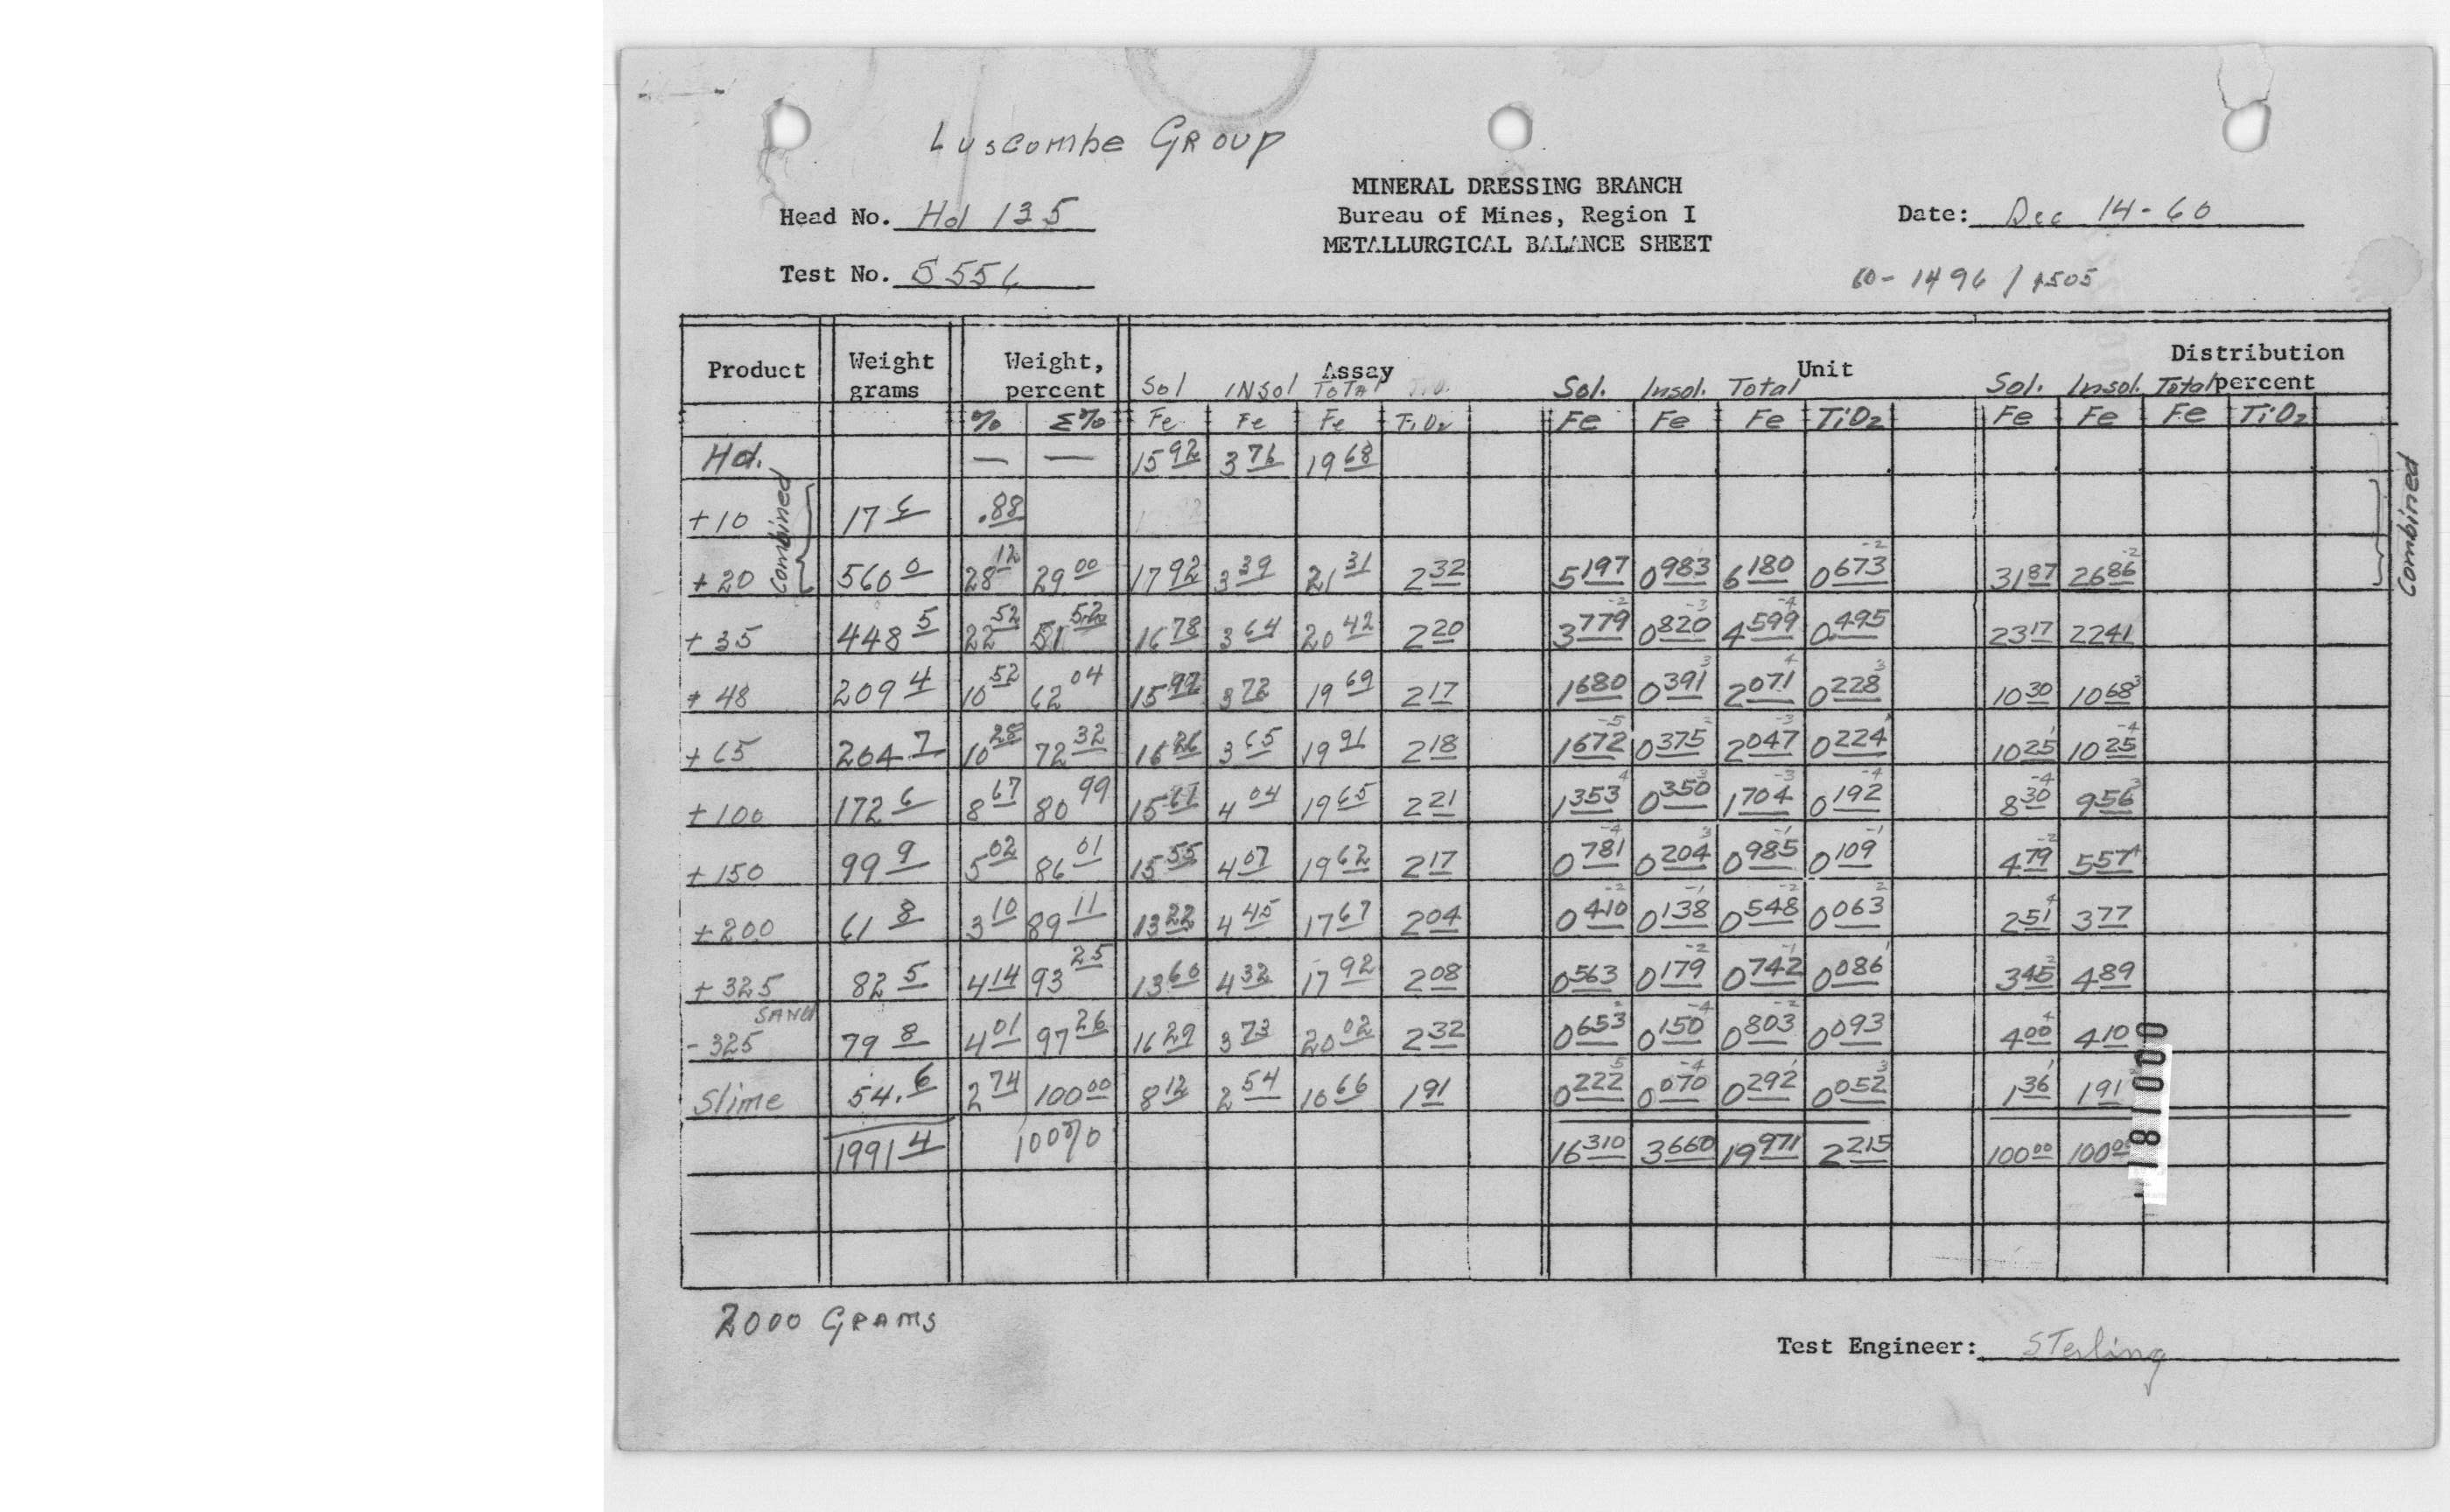 Luscombe Group
MINERAL DRESSING BRANCH
Head No. Hd 135 Bureau of Mines, Region I Date: Dec 14-60
METALLURGICAL BALANCE SHEET
Test No. S556 60-1496/1505
Product Weight grams Weight, percent Assay Unit Distribution percent
Sol INSol TOTAL Sol. Insol. Total Sol. Insol. Total
% Σ% Fe Fe Fe TiO2 Fe Fe Fe TiO2 Fe Fe Fe TiO2
Hd. — — 15 92 3 76 19 68
+10 17 6 .88
Combined
+20 560 0 28 12 29 00 17 92 3 39 21 31 2 32 5 197 0 983 6 180 0 673 31 87 26 86
Combined
+35 448 5 22 52 51 52 16 78 3 64 20 42 2 20 3 779 0 820 4 599 0.495 23 17 22 41
+48 209 4 10 52 62 04 15 97 3 72 19 69 2 17 1 680 0 391 2 071 0 228 10 30 10 68
+65 204 7 10 28 72 32 16 26 3 65 19 91 2 18 1 672 0 375 2 047 0 224 10 25 10 25
+100 172 6 8 67 80 99 15 61 4 04 19 65 2 21 1 353 0 350 1 704 0 192 8 30 9 56
+150 99 9 5 02 86 01 15 55 4 07 19 62 2 17 0 781 0 204 0 985 0 109 4 79 5 57
+200 61 8 3 10 89 11 13 22 4 45 17 67 2 04 0 410 0 138 0 548 0 063 2 51 3 77
+325 82 5 4 14 93 25 13 60 4 32 17 92 2 08 0 563 0 179 0 742 0 086 3 45 4 89
SAND
-325 79 8 4 01 97 26 16 29 3 73 20 02 2 32 0 653 0 150 0 803 0 093 4 00 4 10
Slime 54.6 2 74 100 00 8 12 2 54 10 66 1 91 0 222 0 070 0 292 0 052 1 36 1 91
1991 4 100% 16 310 3 660 19 971 2 215 100 00 100 00
181000
2000 GRAMS
Test Engineer: Sterling